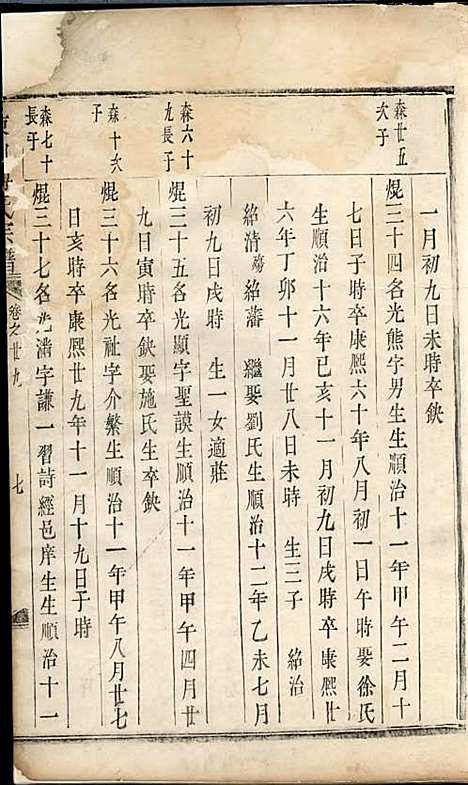 一月初九日未時卒缺
森廿五
次子
焜三十四名光熊字男生生順治十一年甲午二月十
七日子時卒康熙六十年八月初一日午時娶徐氏
生順治十六年己亥十一月初九日戌時卒康熙廿
六年丁卯十一月廿八日未時 生三子 紹治
紹清殤紹藩 繼娶劉氏生順治十二年乙未七月
初九日戌時 生一女適莊
森六十
九長子
焜三十五名光顯字聖謨生順治十一年甲午四月廿
九日寅時卒缺娶施氏生卒缺
森十次
子
焜三十六名光祉字介繁生順治十一年甲午八月廿七
日亥時卒康熙廿九年十一月十九日子時
森七十
長子
焜三十七名光滿字謙一習詩經邑庠生生順治十一
氏宗譜
卷之廿九
七